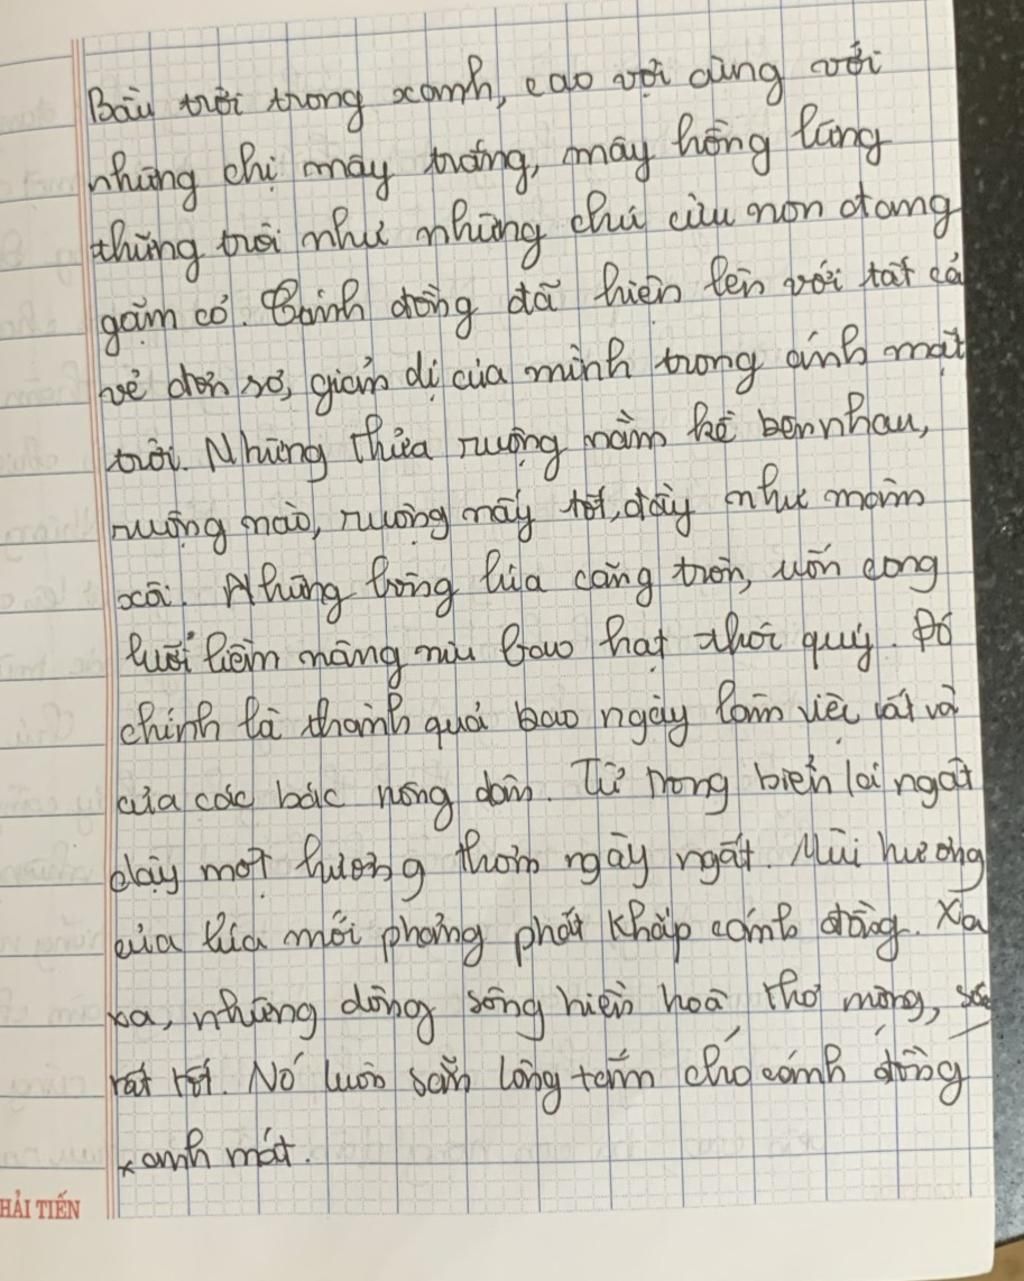 Bầu trời trong xanh, cao vợi cùng với
những chị mây trắng, mây hồng lững
thững trôi như những chú cừu non đang
gặm cỏ. Cánh đồng đã hiện lên với tất cả
vẻ đơn sơ, giản dị của mình trong ánh mặt
trời. Những thửa ruộng nằm kề bên nhau,
ruộng nào, ruộng nấy tốt, đầy như mâm
xôi. Những bông lúa căng tròn, uốn cong
lưỡi liềm nâng niu bao hạt thóc quý. Đó
chính là thành quả bao ngày làm việc vất vả
của các bác nông dân. Từ trong biển lại ngát
dậy một hương thơm ngây ngất. Mùi hương
của lúa mới phảng phất khắp cánh đồng. Xa
xa, những dòng sông hiền hoà thơ mộng,
rất tốt. Nó luôn sẵn lòng tắm cho cánh đồng
xanh mát.
HẢI TIẾN